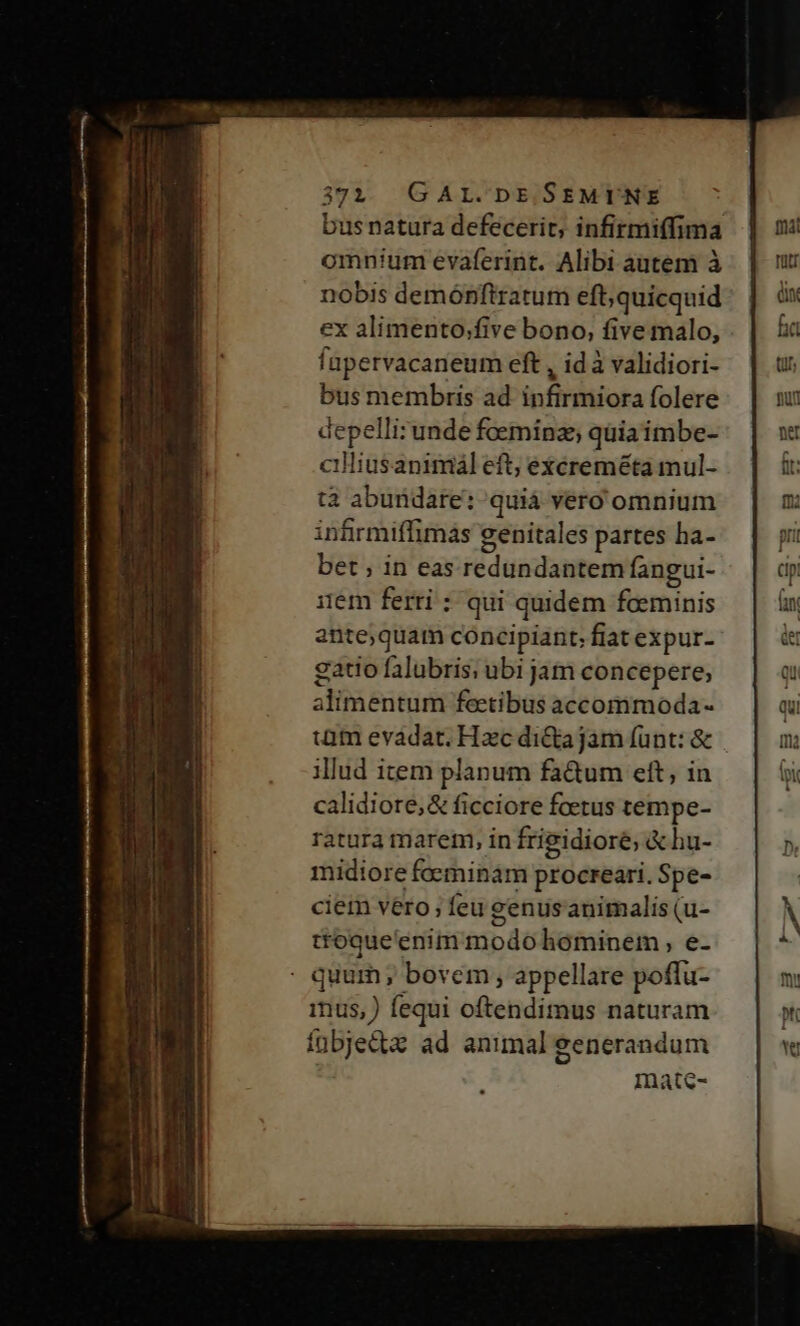 372 GAL. DE SEMINE
bus natura defecerit, infirmiſſima
omnium evaſerint. Alibi autem à
nobis demónſtratum eſt, quicquid
ex alimento, ſive bono, ſive malo,
ſupervacaneum eſt, id à validiori-
bus membris ad infirmiora ſolere
depelli: unde fœminæ, quia imbe-
cillius animal eſt, excremēta mul-
ta abundare: quia vero omnium
infirmiſſimas genitales partes ha-
bet, in eas redundantem ſangui-
nem ferri: qui quidem fœminis
ante, quam concipiant, fiat expur-
gatio ſalubris, ubi jam concepere,
alimentum fœtibus accommoda-
tum evadat. Hæc dicta jam ſunt: &
illud item planum factum eſt, in
calidiore, & ſicciore fœtus tempe-
ratura marem, in frigidiore, & hu-
midiore fœminam procreari. Spe-
ciem vero, ſeu genus animalis (u-
troque enim modo hominem, e-
quum, bovem, appellare poſſu-
mus,) ſequi oſtendimus naturam
ſubjectæ ad animal generandum
mate-